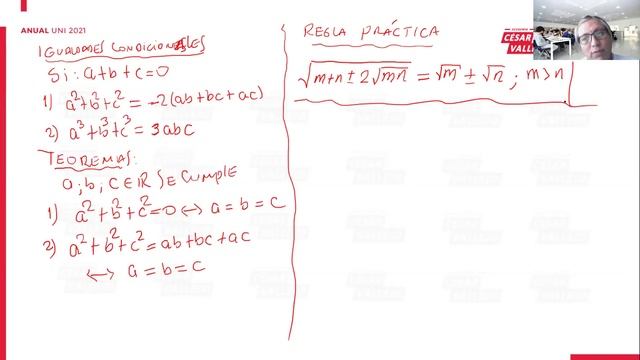 ANUAL UNI 2021
IGUALDADES CONDICIONALES
Si: a+b+c=0
1) a²+b²+c² = -2(ab+bc+ac)
2) a³+b³+c³ = 3abc
TEOREMAS:
a; b; c ∈ IR SE CUMPLE
1) a²+b²+c²=0 ↔ a=b=c
2) a²+b²+c²=ab+bc+ac
↔ a=b=c
REGLA PRÁCTICA
√(m+n±2√(mn)) = √m ± √n ; m>n
ACADEMIA
CÉSAR
VALLEJO